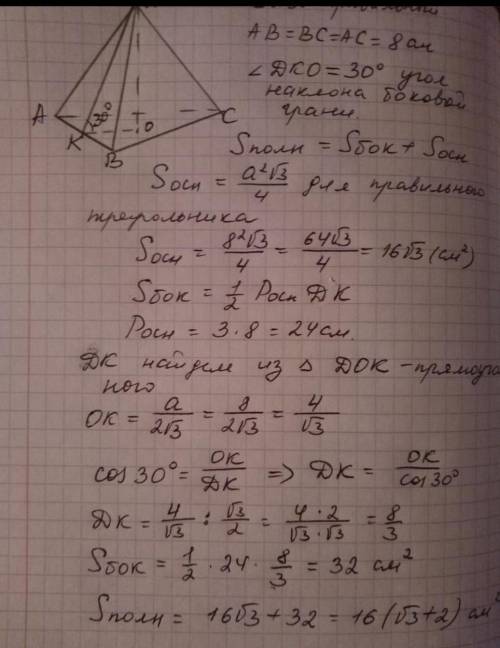 AB = BC = AC = 8 см
∠DKO = 30° угол
наклона боковой
грани.
A
30°
K
O
B
C
Sполн = Sбок + Sосн
Sосн = a²√3/4 для правильного
треугольника
Sосн = 8²√3/4 = 64√3/4 = 16√3 (см²)
Sбок = 1/2 Pосн DK
Pосн = 3 · 8 = 24 см.
DK найдем из △ DOK - прямоуго
ного
OK = a/2√3 = 8/2√3 = 4/√3
cos 30° = OK/DK => DK = OK/cos 30°
DK = 4/√3 : √3/2 = 4 · 2/√3 · √3 = 8/3
Sбок = 1/2 · 24 · 8/3 = 32 см²
Sполн = 16√3 + 32 = 16(√3+2) см²